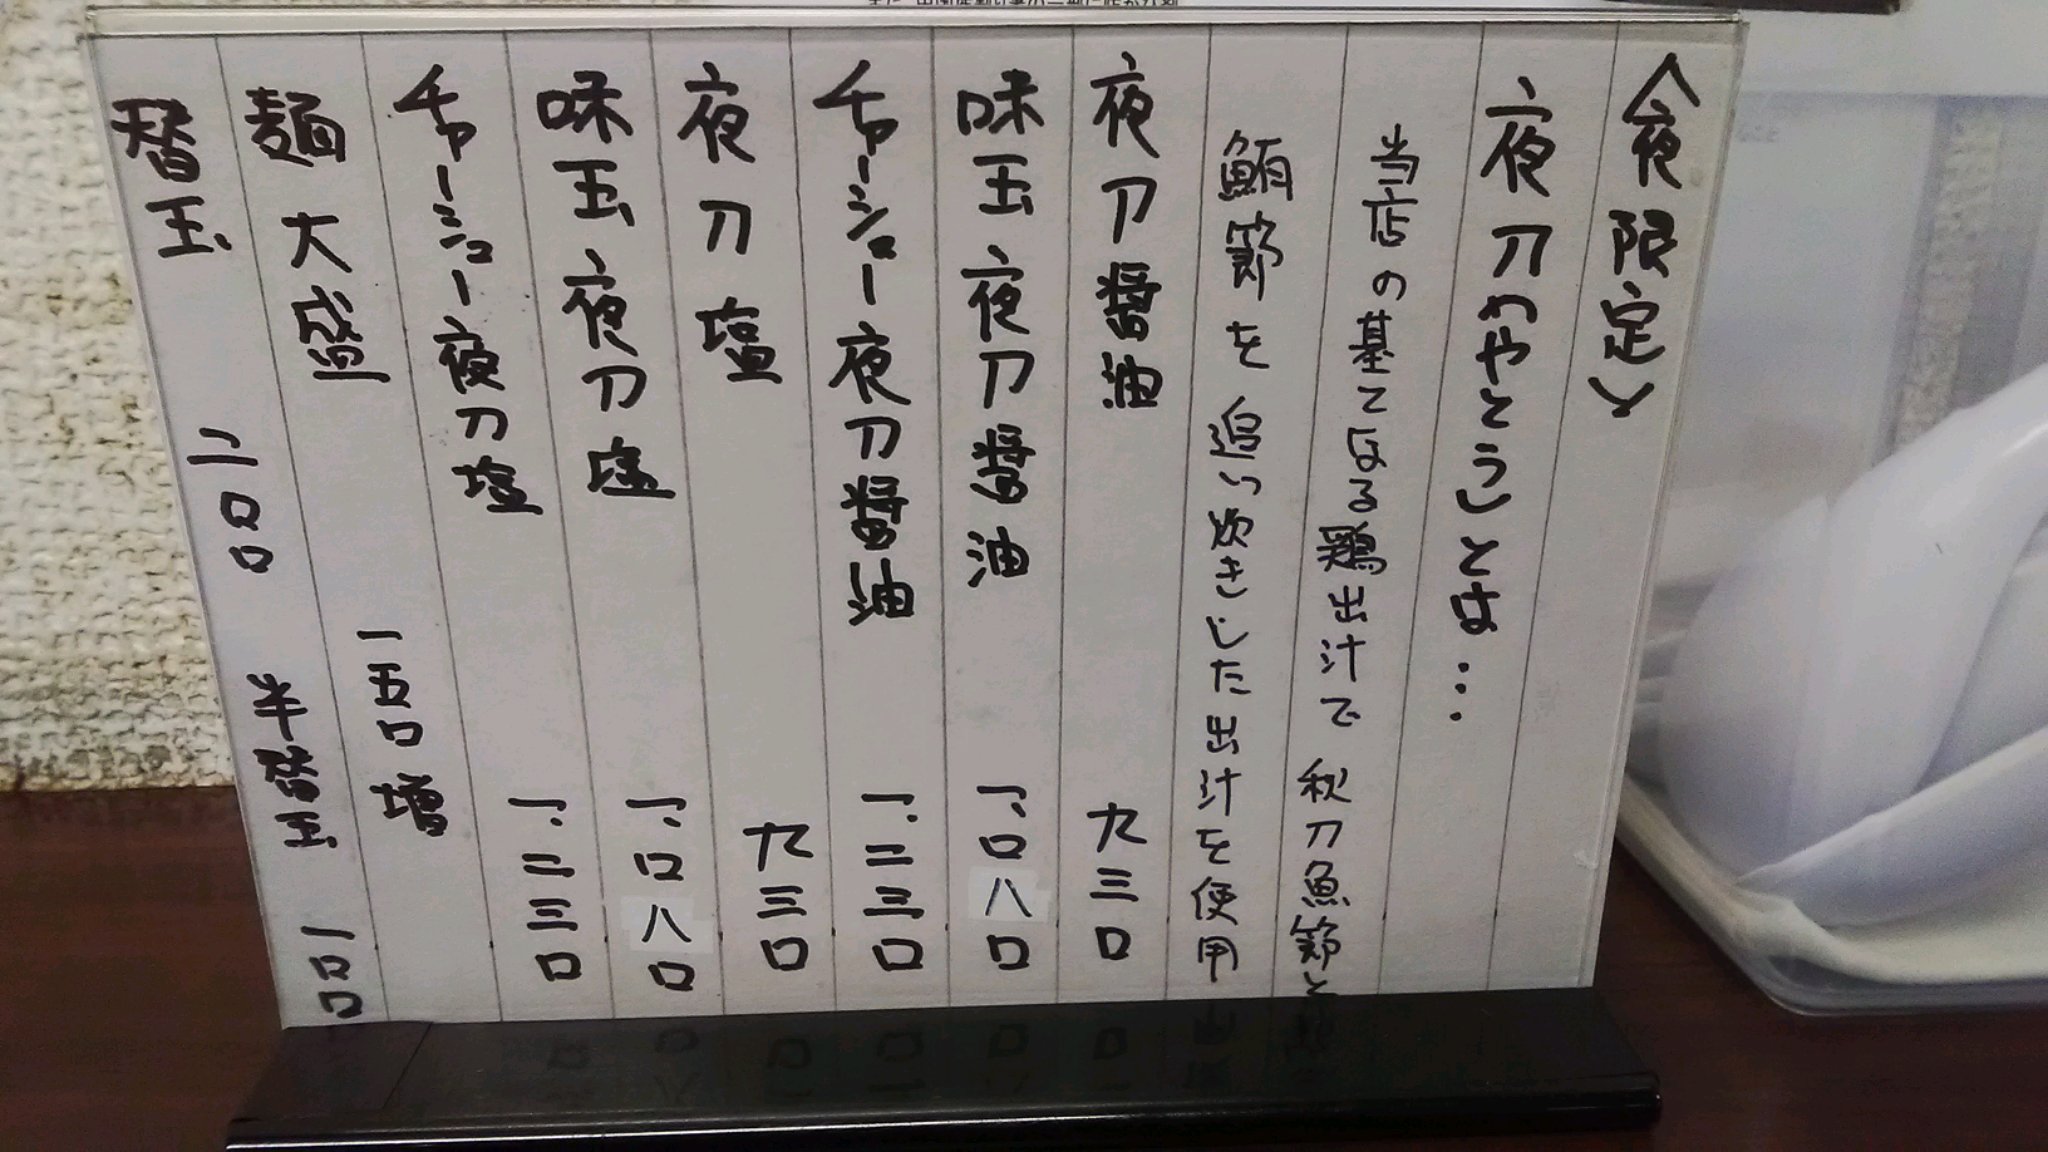 〈夜限定〉
夜刀〈やとう〉とは…
当店の基となる鶏出汁で秋刀魚節と
鮪節を追い炊きした出汁を使用
夜刀醤油 九三〇
味玉夜刀醤油 一、〇八〇
チャーシュー夜刀醤油 一、二三〇
夜刀塩 九三〇
味玉夜刀塩 一、〇八〇
チャーシュー夜刀塩 一、二三〇
麺大盛 一五〇増
替玉 二〇〇 半替玉 一〇〇